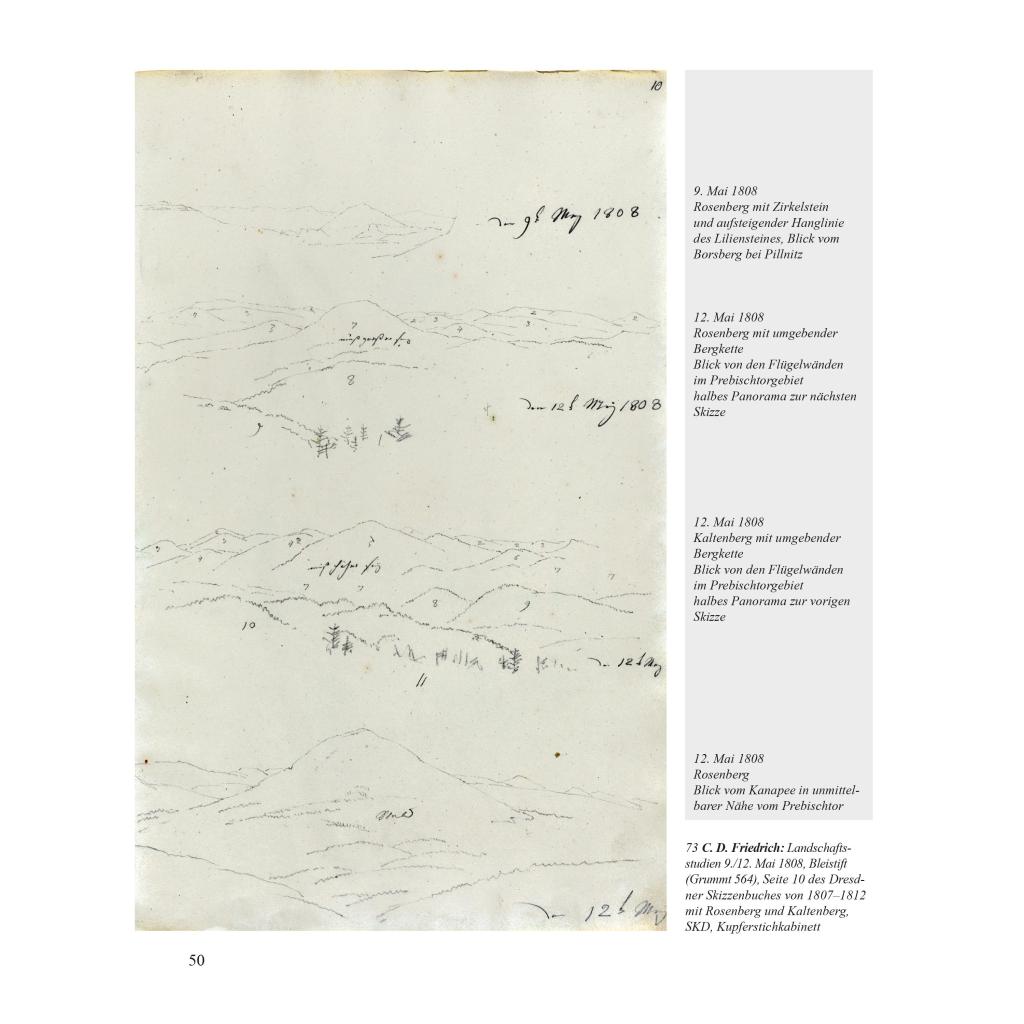 10
den 9t May 1808
9. Mai 1808
Rosenberg mit Zirkelstein
und aufsteigender Hanglinie
des Liliensteines, Blick vom
Borsberg bei Pillnitz
7 3 3 2 3 4 2 3 2
7
8
den 12t May 1808
9
12. Mai 1808
Rosenberg mit umgebender
Bergkette
Blick von den Flügelwänden
im Prebischtorgebiet
halbes Panorama zur nächsten
Skizze
7 7
8
9
10
12t May
11
12. Mai 1808
Kaltenberg mit umgebender
Bergkette
Blick von den Flügelwänden
im Prebischtorgebiet
halbes Panorama zur vorigen
Skizze
12t May
12. Mai 1808
Rosenberg
Blick vom Kanapee in unmittel-
barer Nähe vom Prebischtor
73 C. D. Friedrich: Landschafts-
studien 9./12. Mai 1808, Bleistift
(Grummt 564), Seite 10 des Dresd-
ner Skizzenbuches von 1807–1812
mit Rosenberg und Kaltenberg,
SKD, Kupferstichkabinett
50